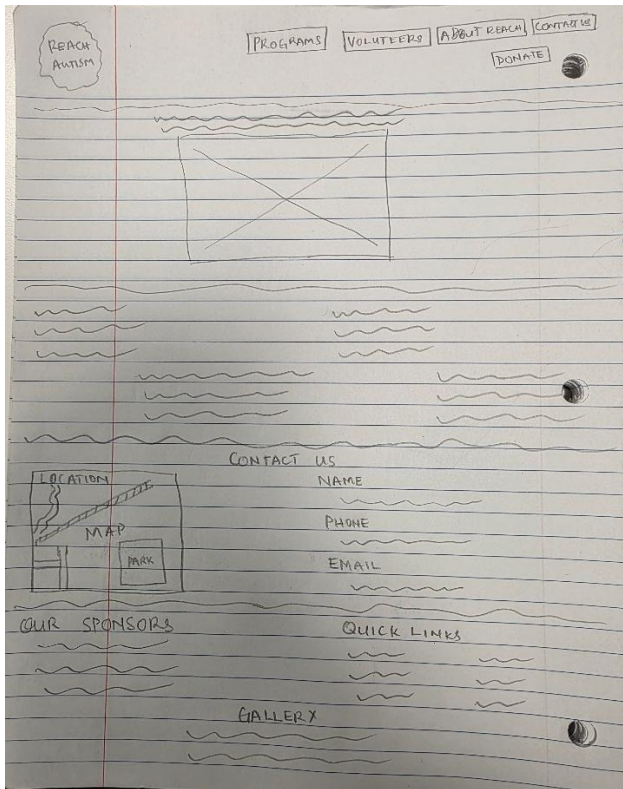 REACH
AUTISM
PROGRAMS
VOLUTEERS
ABOUT REACH
CONTACT US
DONATE
CONTACT US
LOCATION
MAP
PARK
NAME
PHONE
EMAIL
OUR SPONSORS
QUICK LINKS
GALLERY